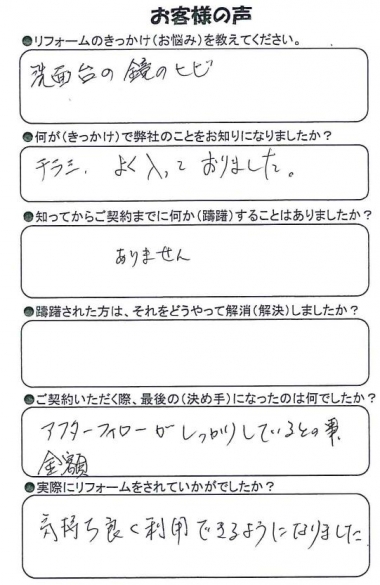 お客様の声
●リフォームのきっかけ(お悩み)を教えてください。
洗面台の鏡のヒビ
●何が(きっかけ)で弊社のことをお知りになりましたか?
チラシ、よく入って おりました。
●知ってからご契約までに何か(躊躇)することはありましたか?
ありません
●躊躇された方は、それをどうやって解消(解決)しましたか?
●ご契約いただく際、最後の(決め手)になったのは何でしたか?
アフターフォローがしっかりしているとの事
金額
●実際にリフォームをされていかがでしたか?
気持ち良く利用できるようになりました